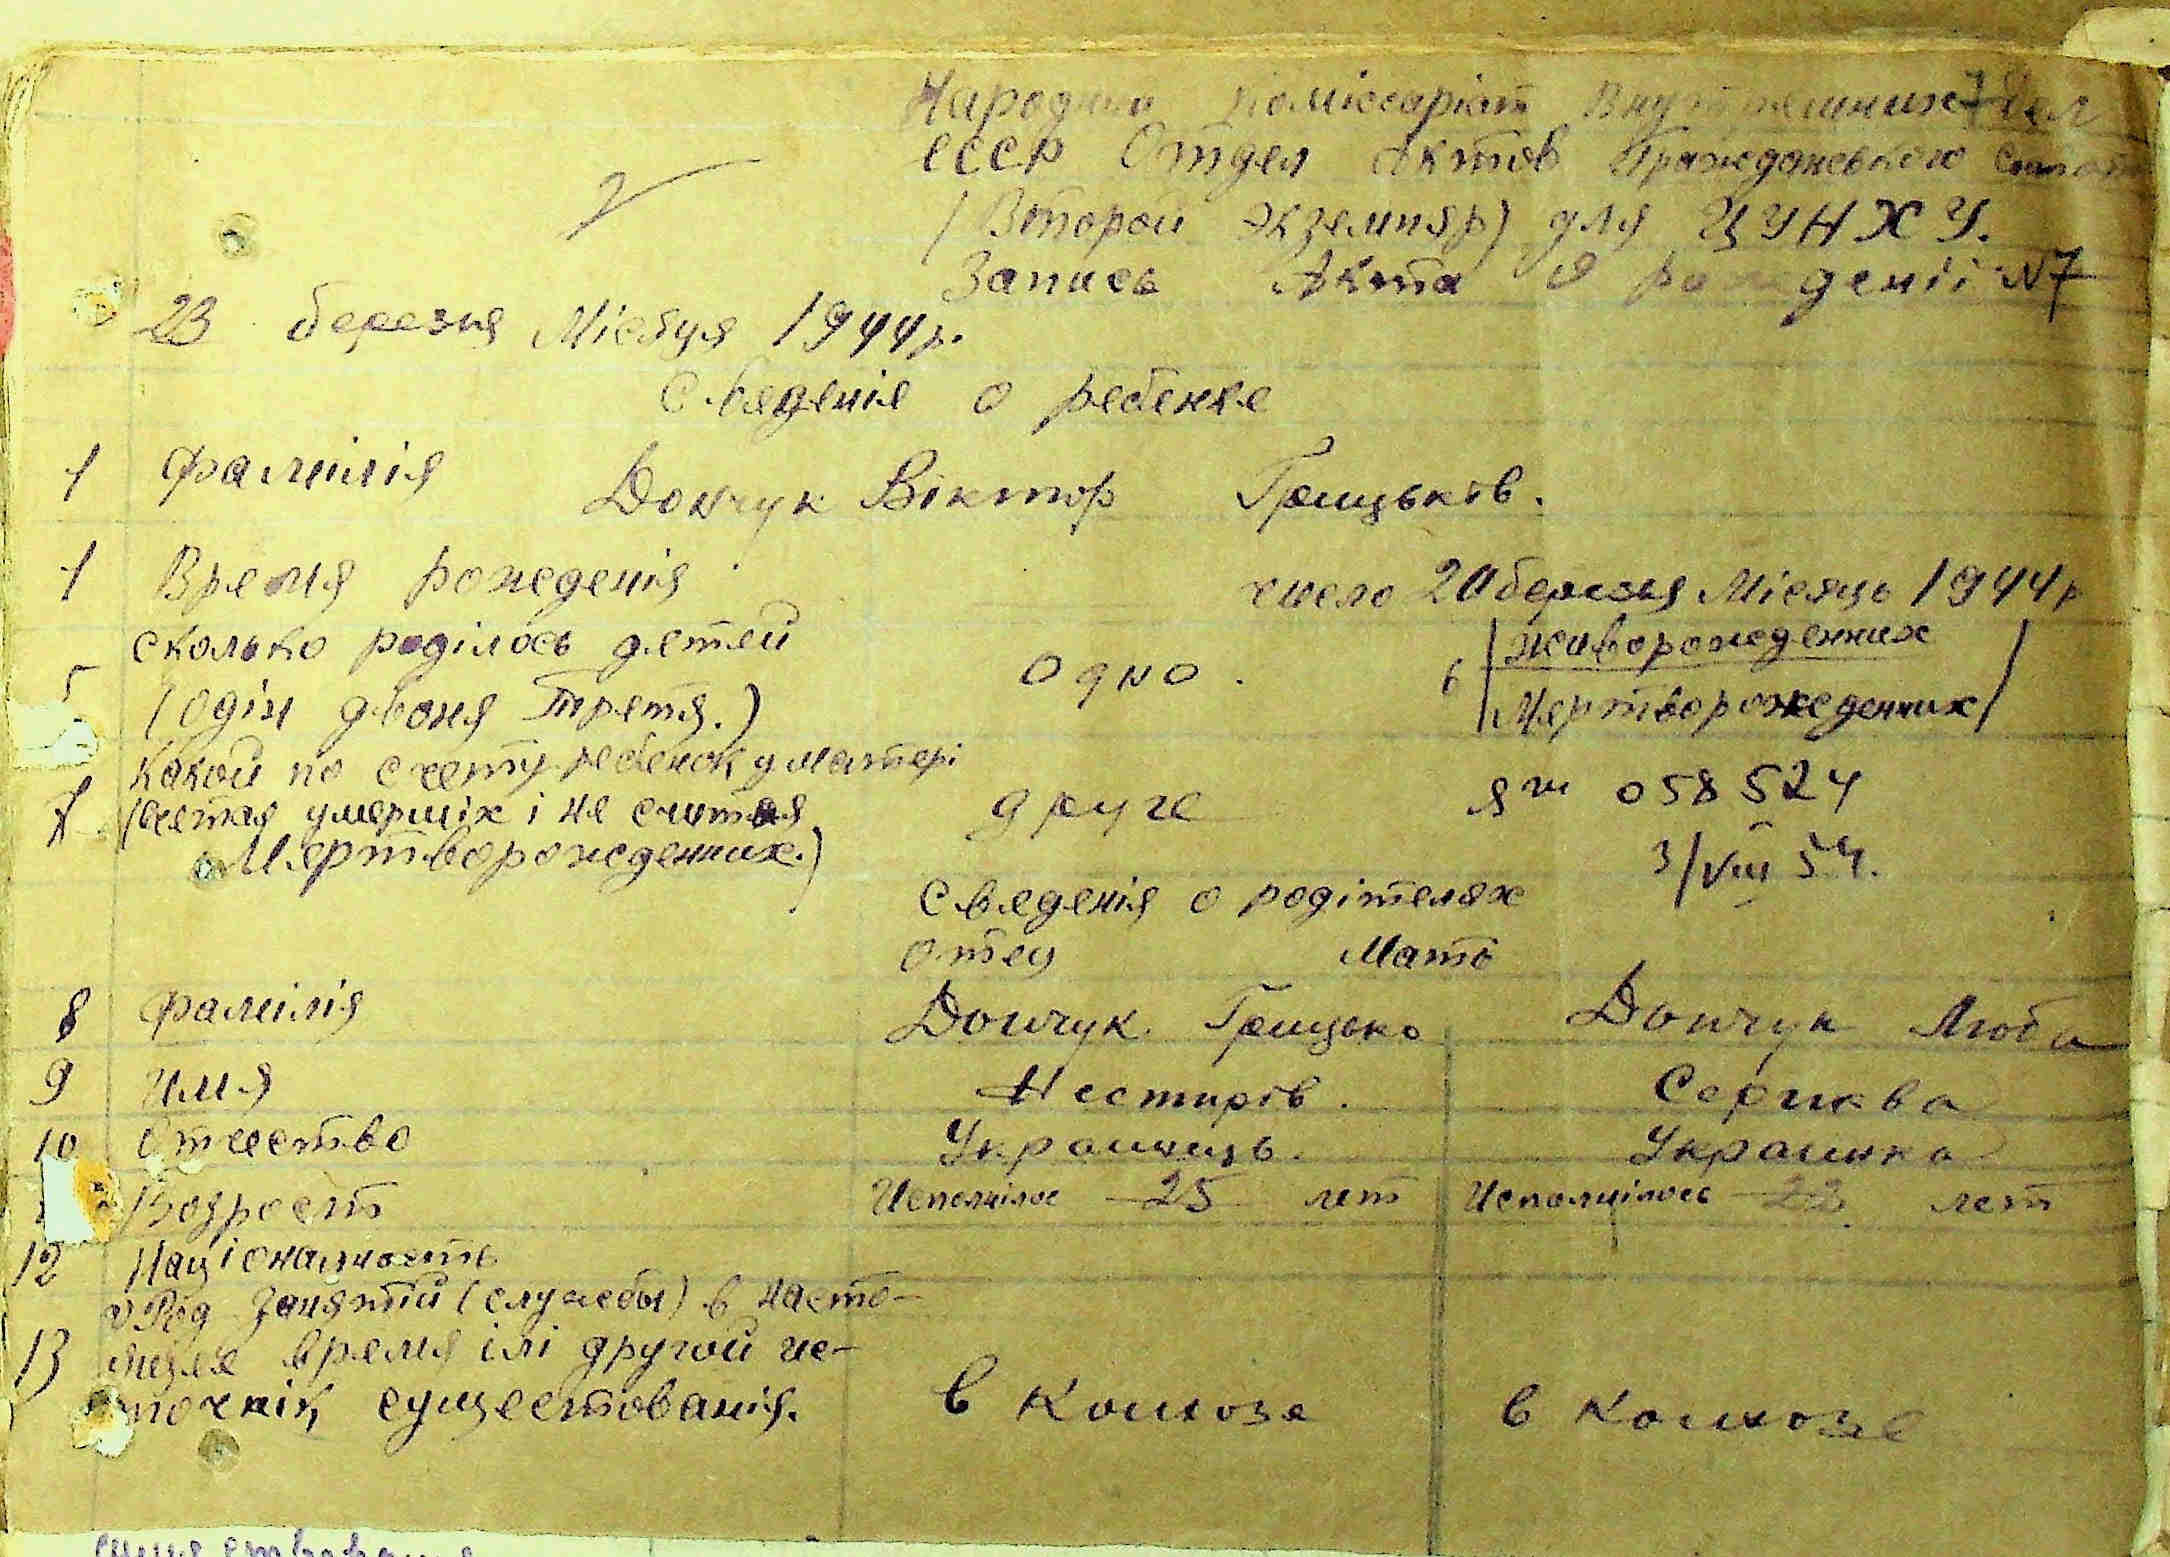 7
Народний Комісаріат Внутрешних Дел
СССР Отдел Актов Гражданського
(Второй экземпяр) для ЦУНХУ.
Запись Акта о рождениі №7
23 березня Місяця 1944р.
Сведения о ребенке
1 Фамілія Дончук Віктор Грицьків.
Время рожедения число 20 березня Місяць 1944р
сколько роділось детей
5 (один двойня Третя.) Одно. 6 / Живорожденних / Мертворожденних /
Какой по счету ребенок у матері
7 (щетая умерших і не считая друге Ян 058524
Мертворожденних.) 3/VIII 54.
Сведенія о родітелях
Отец Мать
8 Фамілія Дончук Грицько Дончук Люба
9 Имя Нестирів. Сергиева
10 Отчество Украинець. Украинка
Возрост Исполнілос 25 лет Исполнілось лет
12 Націоналность
Род Занятий (служебы) в насто-
13 ящее время ілі другой ис-
точнік существованія. в Колхозе в Колхозе